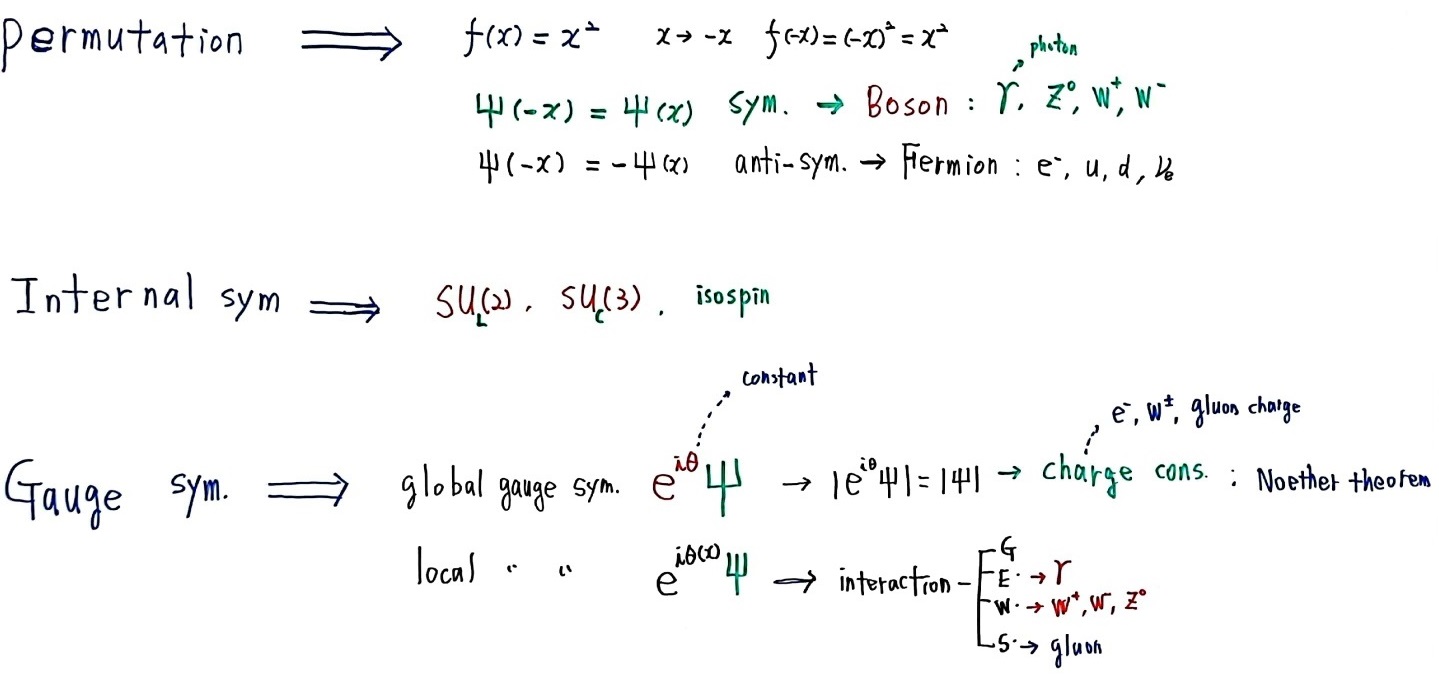 photon
Permutation ⟹ f(x) = x² x → -x f(-x) = (-x)² = x²
Ψ(-x) = Ψ(x) sym. → Boson : γ, Z⁰, W⁺, W⁻
Ψ(-x) = -Ψ(x) anti-sym. → Fermion : e⁻, u, d, νₑ
Internal sym ⟹ SU_L(2), SU_c(3), isospin
constant
e⁻, W±, gluon charge
Gauge sym. ⟹ global gauge sym. e^{iθ}Ψ → |e^{iθ}Ψ| = |Ψ| → charge cons. : Noether theorem
local " " e^{iθ(x)}Ψ → interaction
G
E. → γ
W. → W⁺, W⁻, Z⁰
S. → gluon